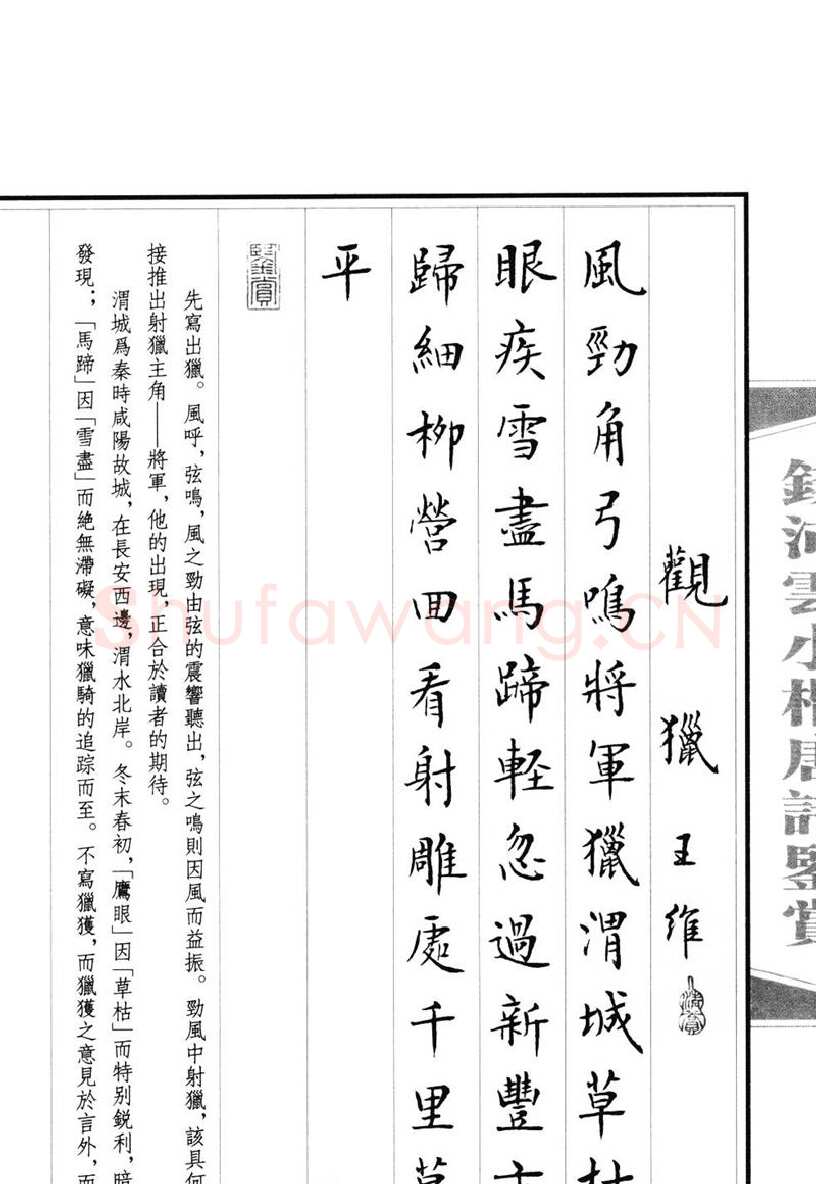 觀獵 王維
風勁角弓鳴將軍獵渭城草
眼疾雪盡馬蹄輕忽過新豐
歸細柳營回看射雕處千里
平
鑒賞
先寫出獵。風呼，弦鳴，風之勁由弦的震響聽出，弦之鳴則因風而益振。勁風中射獵，該具何
接推出射獵主角——將軍，他的出現，正合於讀者的期待。
渭城爲秦時咸陽故城，在長安西邊，渭水北岸。冬末春初，「鷹眼」因「草枯」而特别銳利，暗
發現；「馬蹄」因「雪盡」而絶無滯礙，意味獵騎的追踪而至。不寫獵獲，而獵獲之意見於言外，而
雲小楷唐詩鑒賞
Shufawang.CN